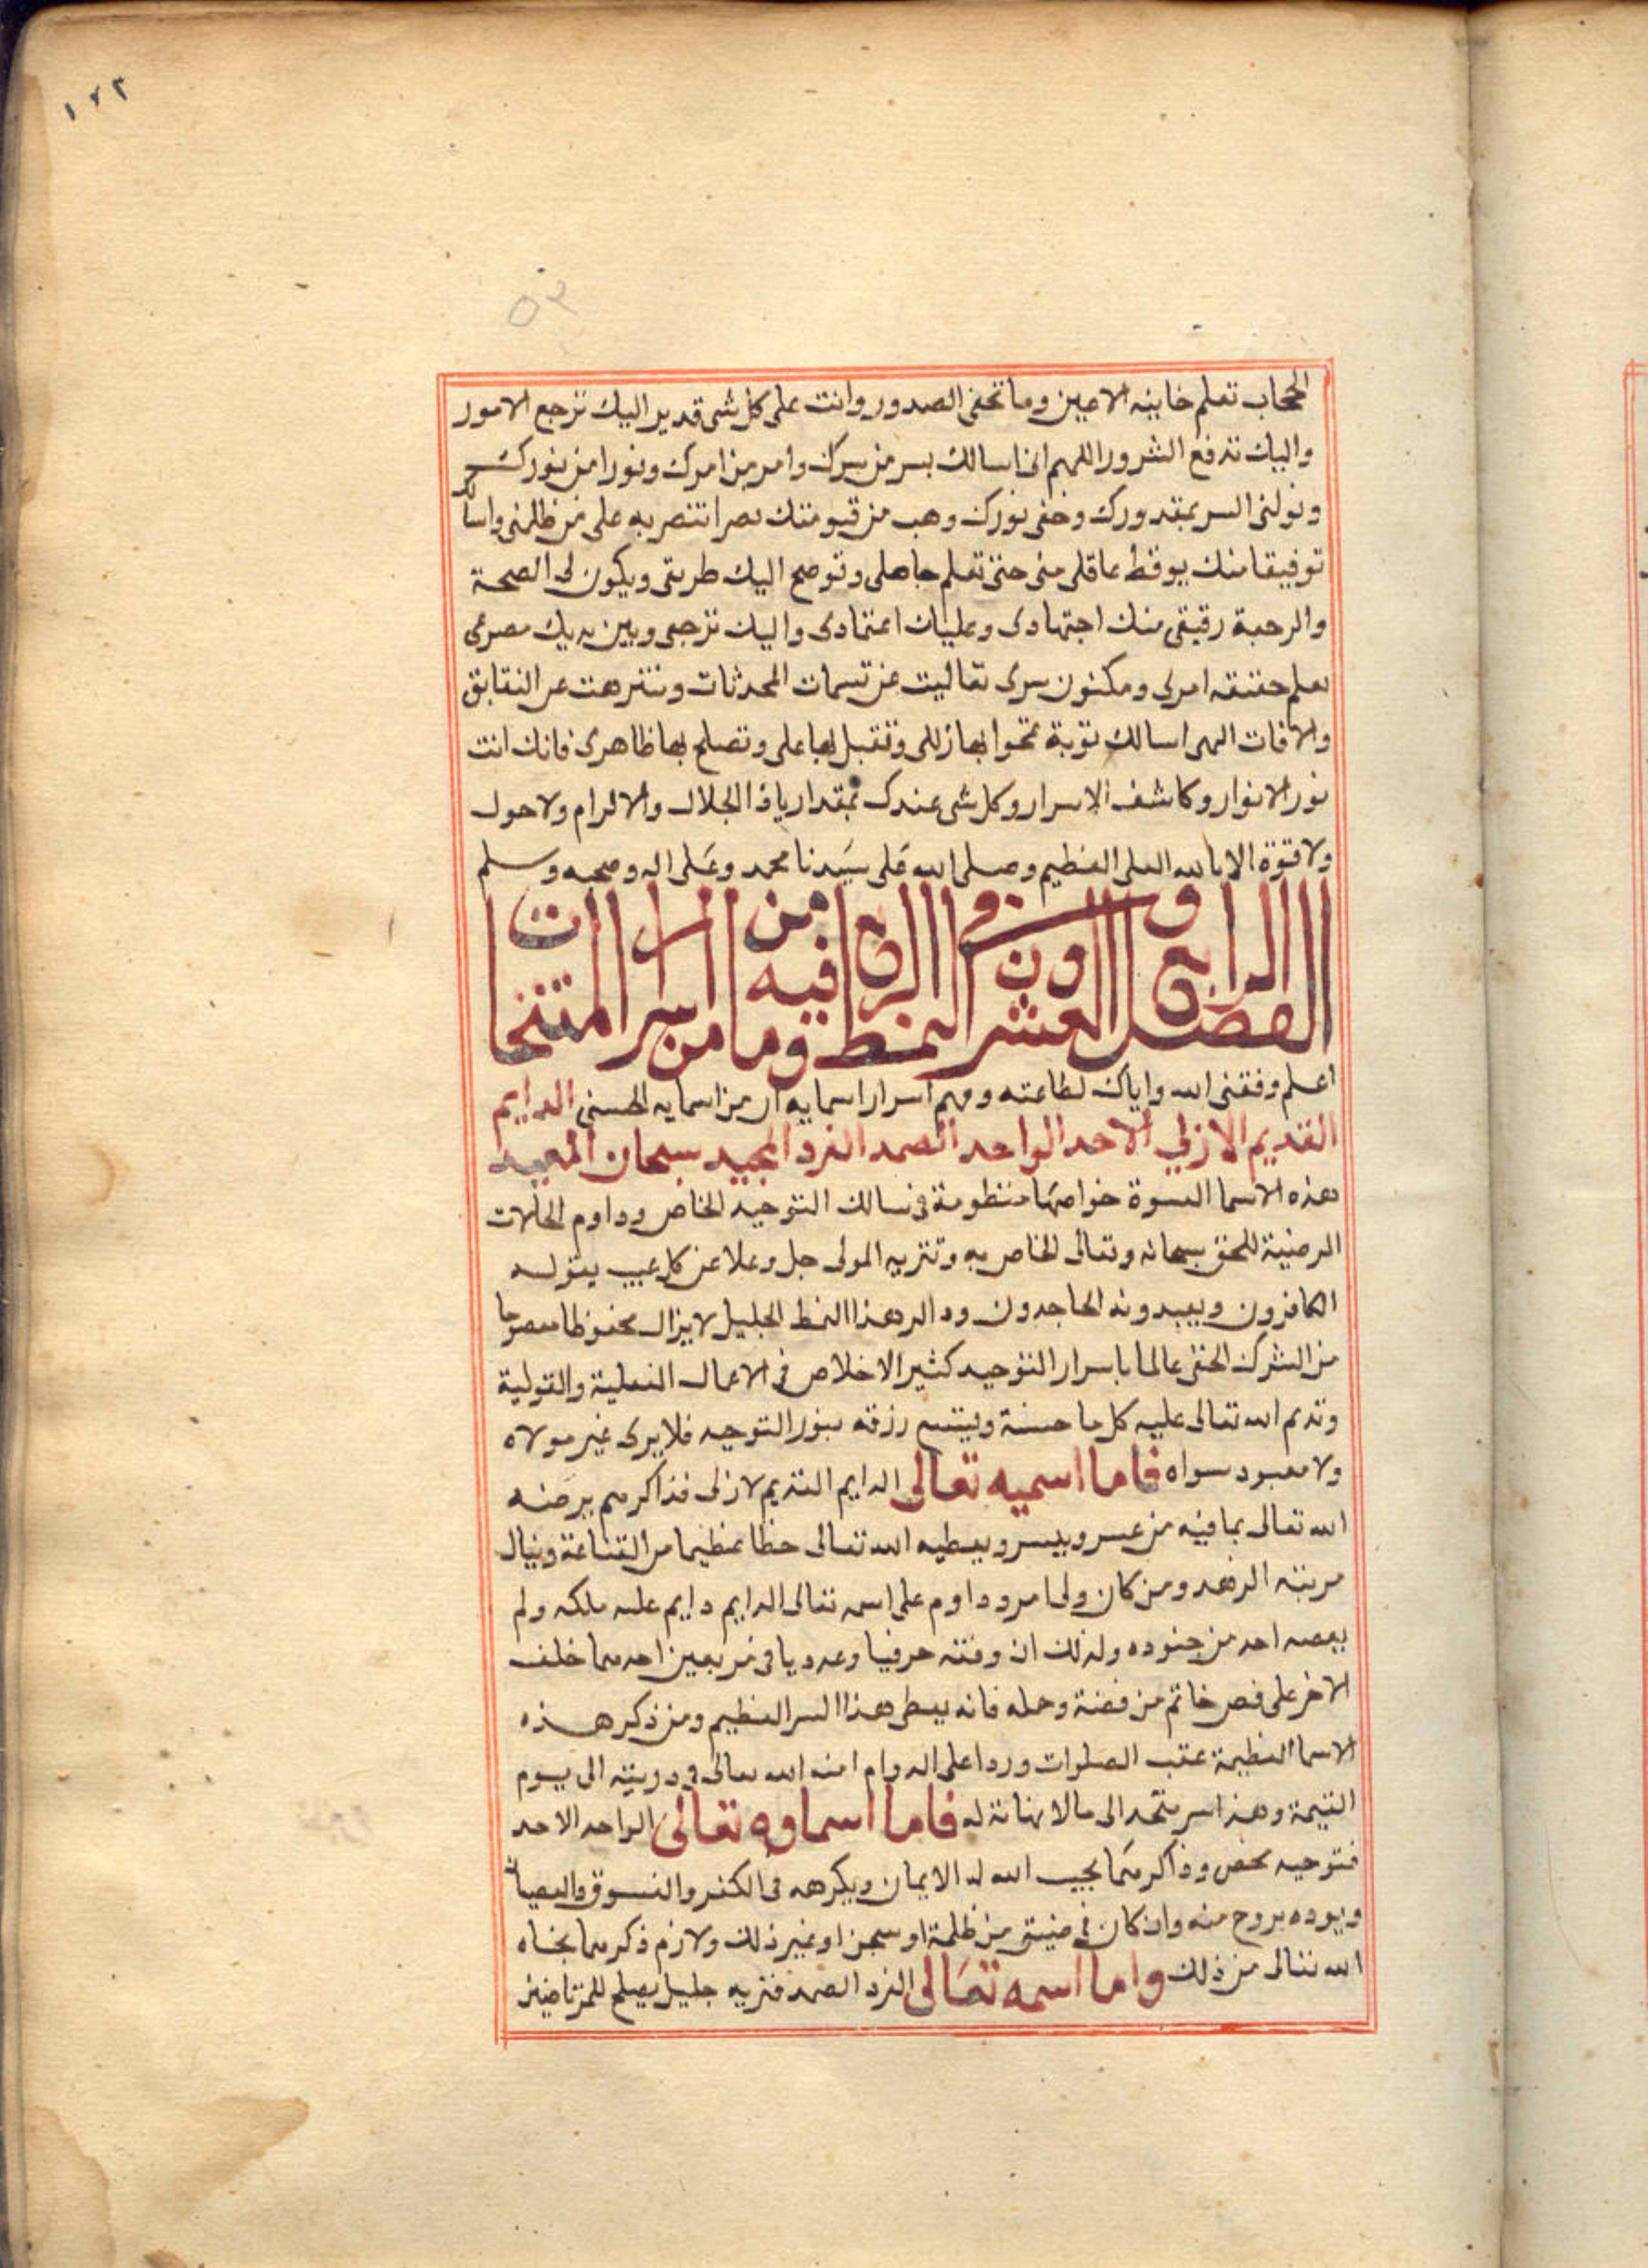 ١٧٣
٥٣
الحجاب تعلم خاينه الاعين وما تخفى الصدور وانت على كل شى قدير اليك ترجع الامور
واليك تدفع الشرور اللهم انى اسالك بسر من سرك وامر من امرك ونورا من نورك
وتولنى السر بمقدورك وخفى نورك وهب من قيومتك نصرا انتصر به على من ظلمنى واسالك
توفيقا منك يوقظ عاقلى منى حتى تعلم جاهلى وتوضح اليك طريقى ويكون لى الصحة
والرحبة رقيقى منك اجتهادى وعليك اعتمادى واليك ترجعى وبين يديك مصرعى
تعلم حقيقه امرى ومكنون سرى تعاليت عن تسمات المحدثات وتنزهت عن النقايق
والافات الهى اسالك توبة تمحوا بها زللى وتقبل بها عملى وتصلح بها ظاهرى فانك انت
نور الانوار وكاشف الاسرار وكل شى عندك بمقدار ياذا الجلال والاكرام ولاحول
ولا قوة الا بالله العلى العظيم وصلى الله على سيدنا محمد وعلى اله وصحبه وسلم
الفصل الرابع والعشرون فى النمط الرابع وما فيه من اسرار
اعلم وفقنى الله واياك لطاعته وفهم اسرار اسمايه ان من اسمايه الحسنى الدايم
القديم الازلي الاحد الواحد الصمد الفرد المجيد سبحان المعيد
هذه الاسما العسوة خواصها منظومة فى سالك التوحيد الخاص وداوم الحالات
المرضية للحق سبحانه وتعالى الخاص به وتنزيه المولى جل وعلا عن كل عيب يقوله
الكافرون ويعبدونه الجاحدون وذاكر هذا النمط الجليل لايزال محفوظا معصوما
من الشرك الخفى عالما باسرار التوحيد كثير الاخلاص فى الاعمال الفعلية والقولية
وتديم الله تعالى عليه كل ما حسنة ويتسع رزقه بنور التوحيد فلا يرى غير مولاه
ولا معبود سواه فاما اسميه تعالى الدايم القديم لازلى فذاكرهم يرضيه
الله تعالى بما فيه من عسر ويسر ويعطيه الله تعالى حظا عظيما من القناعة وينال
مرتبه الزهد ومن كان ولى امر وداوم على اسمه تعالى الدايم دايم عليه ملكه ولم
يعصه احد من جنوده ولذلك ان وفقه حرفيا وعدديا فى مربعين احدهما خلف
الاخر على فص خاتم من فضة وحمله فانه يعطى هذا السر العظيم ومن ذكر هذه
الاسما العظيمة عقب الصلوات وردا على الدوام امنه الله تعالى فى دريته الى يوم
القيمة وهذا سر متحد الى مالا نهاية له فاما اسماوه تعالى الواحد الاحد
فتوحيد محض وذاكرهما يحبب الله له الايمان ويكرهه فى الكفر والفسوق والعصيان
ويوده بروح منه وان كان فى ضيق من ظلمة او سجن او غير ذلك ولازم ذكرهما نجاه
الله تعالى من ذلك واما اسمه تعالى الفرد الصمد فتريه جليل يصلح للمرتاضين